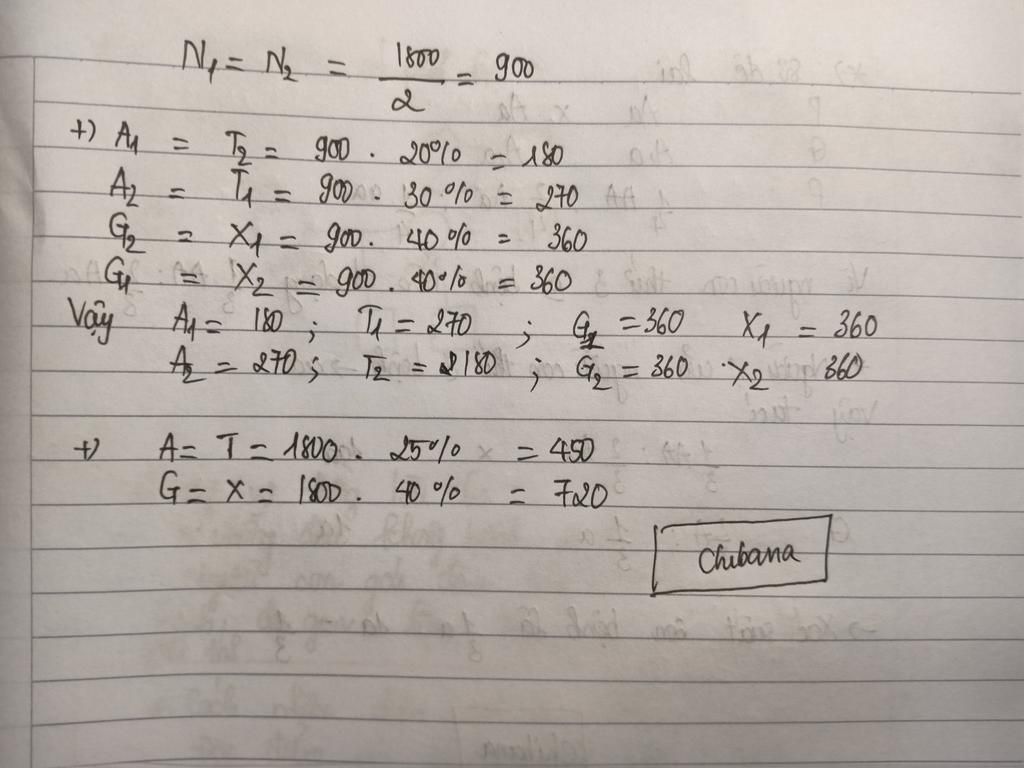 N₁ = N₂ = 1800/2 = 900
+) A₁ = T₂ = 900 . 20% = 180
A₂ = T₁ = 900 . 30% = 270
G₂ = X₁ = 900 . 40% = 360
G₁ = X₂ = 900 . 40% = 360
Vậy A₁ = 180 ; T₁ = 270 ; G₁ = 360 X₁ = 360
A₂ = 270 ; T₂ = 180 ; G₂ = 360 X₂ 360
+) A = T = 1800 . 25% = 450
G = X = 1800 . 40% = 720
Chibana